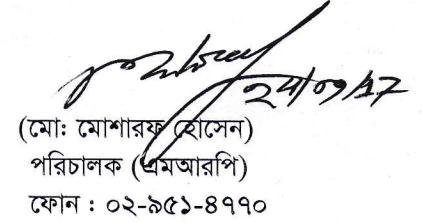 (মো: মোশারফ হোসেন)
পরিচালক (এমআরপি)
ফোন : ০২-৯৫১-৪৭৭০